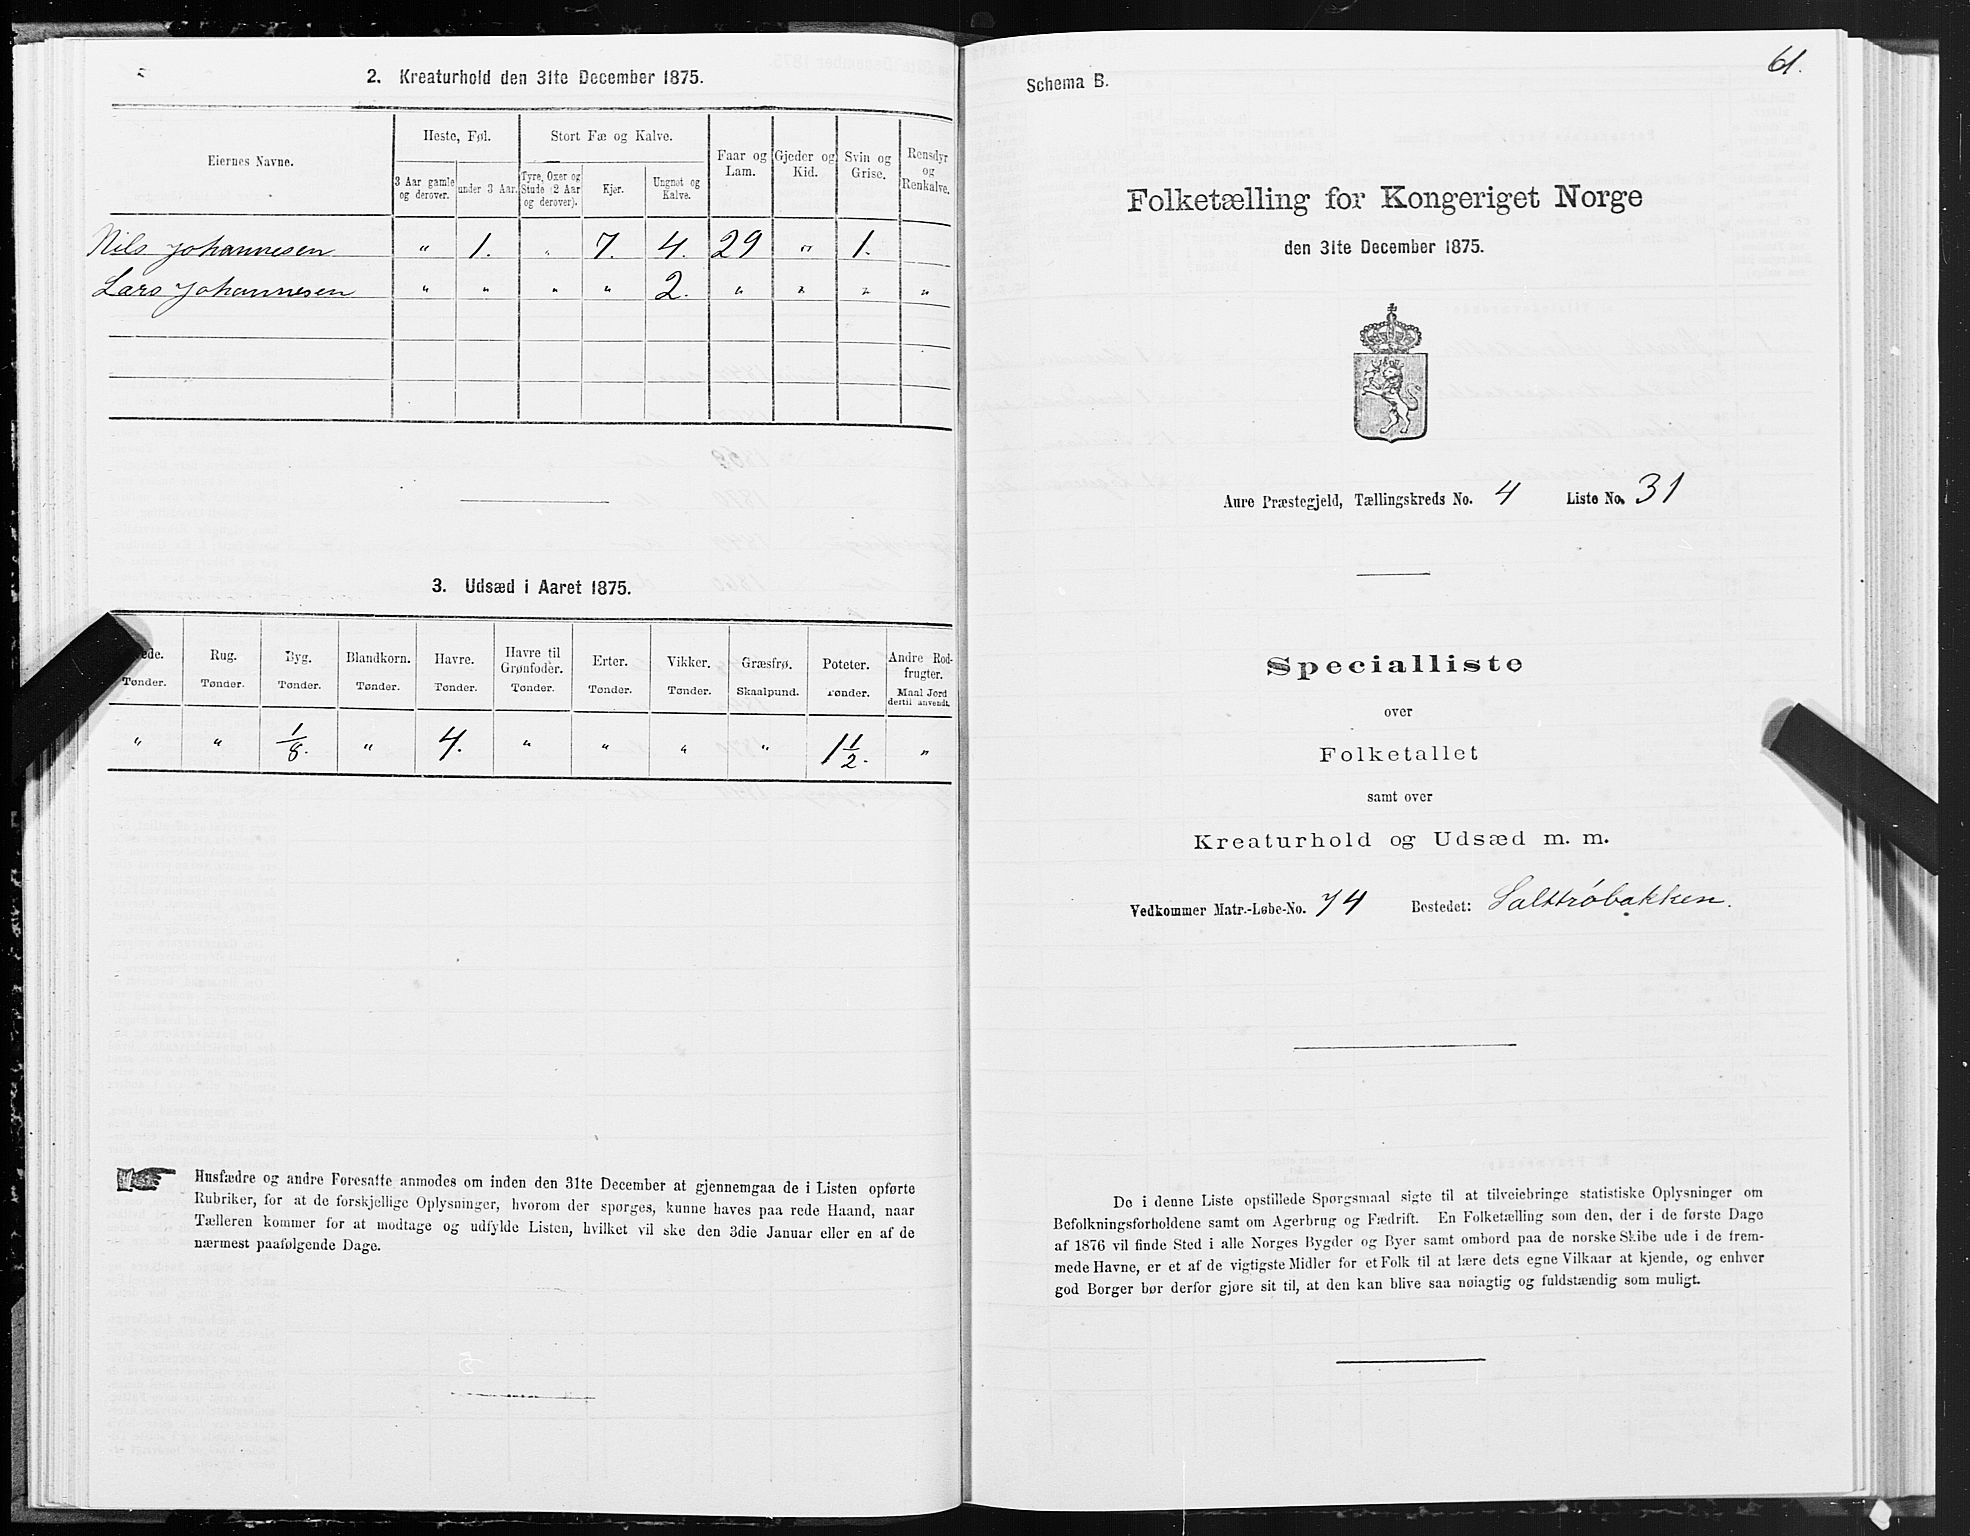 2. Kreaturhold den 31te December 1875.
Eiernes Navne.
Heste, Føl.
Stort Fæ og Kalve.
Faar og Lam.
Gjeder og Kid.
Svin og Grise.
Rensdyr og Renkalve.
3 Aar gamle og derover.
under 3 Aar.
Tyre, Oxer og Stude (2 Aar og derover).
Kjør.
Ungnøt og Kalve.
Nils Johannesen " 1. " 7. 4. 29 " 1.
Lars Johannesen " " " " 2. " " " "
3. Udsæd i Aaret 1875.
Rug. Byg. Blandkorn. Havre. Havre til Grønfoder. Erter. Vikker. Græsfrø. Poteter. Andre Rodfrugter.
Tønder. Tønder. Tønder. Tønder. Tønder. Tønder. Tønder. Tønder. Skaalpund. Tønder. Maal Jord dertil anvendt.
" " 1/8. " 4. " " " " 1 1/2. "
Husfædre og andre Foresatte anmodes om inden den 31te December at gjennemgaa de i Listen opførte
Rubriker, for at de forskjellige Oplysninger, hvorom der spørges, kunne haves paa rede Haand, naar
Tælleren kommer for at modtage og udfylde Listen, hvilket vil ske den 3die Januar eller en af de
nærmest paafølgende Dage.
61.
Schema B.
Folketælling for Kongeriget Norge
den 31te December 1875.
Aure Præstegjeld, Tællingskreds No. 4 Liste No. 31
Specialliste
over
Folketallet
samt over
Kreaturhold og Udsæd m. m.
Vedkommer Matr.-Løbe-No. 74 Bostedet: Salttrøbakken.
De i denne Liste opstillede Spørgsmaal sigte til at tilveiebringe statistiske Oplysninger om
Befolkningsforholdene samt om Agerbrug og Fædrift. En Folketælling som den, der i de første Dage
af 1876 vil finde Sted i alle Norges Bygder og Byer samt ombord paa de norske Skibe ude i de frem-
mede Havne, er et af de vigtigste Midler for et Folk til at lære dets egne Vilkaar at kjende, og enhver
god Borger bør derfor gjøre sit til, at den kan blive saa nøiagtig og fuldstændig som muligt.